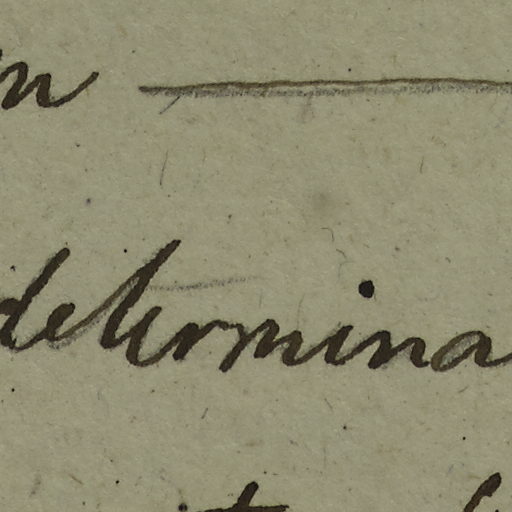 n —
determina